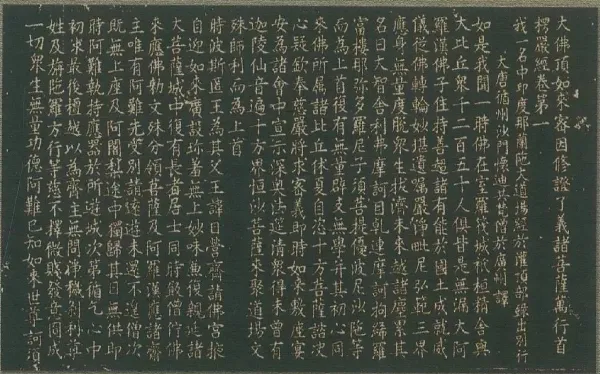 大佛頂如來密因修證了義諸菩薩萬行首
楞嚴經卷第一
我一名中印度那蘭陁大道場經於灌頂部錄出別行
大唐循州沙門懷迪共梵僧於廣州譯
如是我聞一時佛在室羅筏城祇桓精舍與
大比丘衆千二百五十人俱皆是無漏大阿
羅漢佛子住持善超諸有能於國土成就威
儀從佛轉輪妙堪遺囑嚴淨毗尼弘範三界
應身無量度脫衆生拔濟未來越諸塵累其
名曰大智舍利弗摩訶目乾連摩訶拘絺羅
富樓那彌多羅尼子須菩提優波尼沙陁等
而為上首復有無量辟支無學并其初心同
來佛所屬諸比丘休夏自恣十方菩薩諮決
心疑欽奉慈嚴將求密義即時如來敷座宴
安為諸會中宣示深奧法筵清衆得未曾有
迦陵仙音遍十方界恒沙菩薩來聚道場文
殊師利而為上首
時波斯匿王為其父王諱日營齋請佛宮掖
自迎如來廣設珎羞無上妙味兼復親延諸
大菩薩城中復有長者居士同時飯僧佇佛
來應佛勅文殊分領菩薩及阿羅漢應諸齋
主唯有阿難先受別請遠遊未還不遑僧次
既無上座及阿闍梨途中獨歸其日無供即
時阿難執持應器於所遊城次第循乞心中
初求最後檀越以為齋主無問淨穢刹利尊
姓及旃陁羅方行等慈不擇微賤發意圓成
一切衆生無量功德阿難已知如來世尊訶須